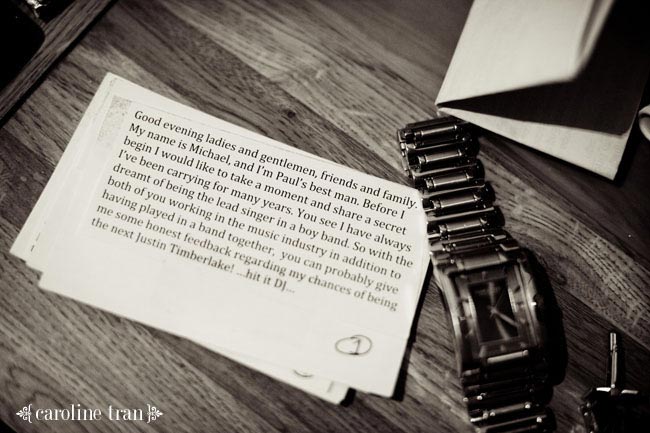 Good evening ladies and gentlemen, friends and family.
My name is Michael, and I'm Paul's best man. Before I
begin I would like to take a moment and share a secret
I've been carrying for many years. You see I have always
dreamt of being the lead singer in a boy band. So with the
both of you working in the music industry in addition to
having played in a band together, you can probably give
me some honest feedback regarding my chances of being
the next Justin Timberlake! ...hit it DJ...
1
caroline tran